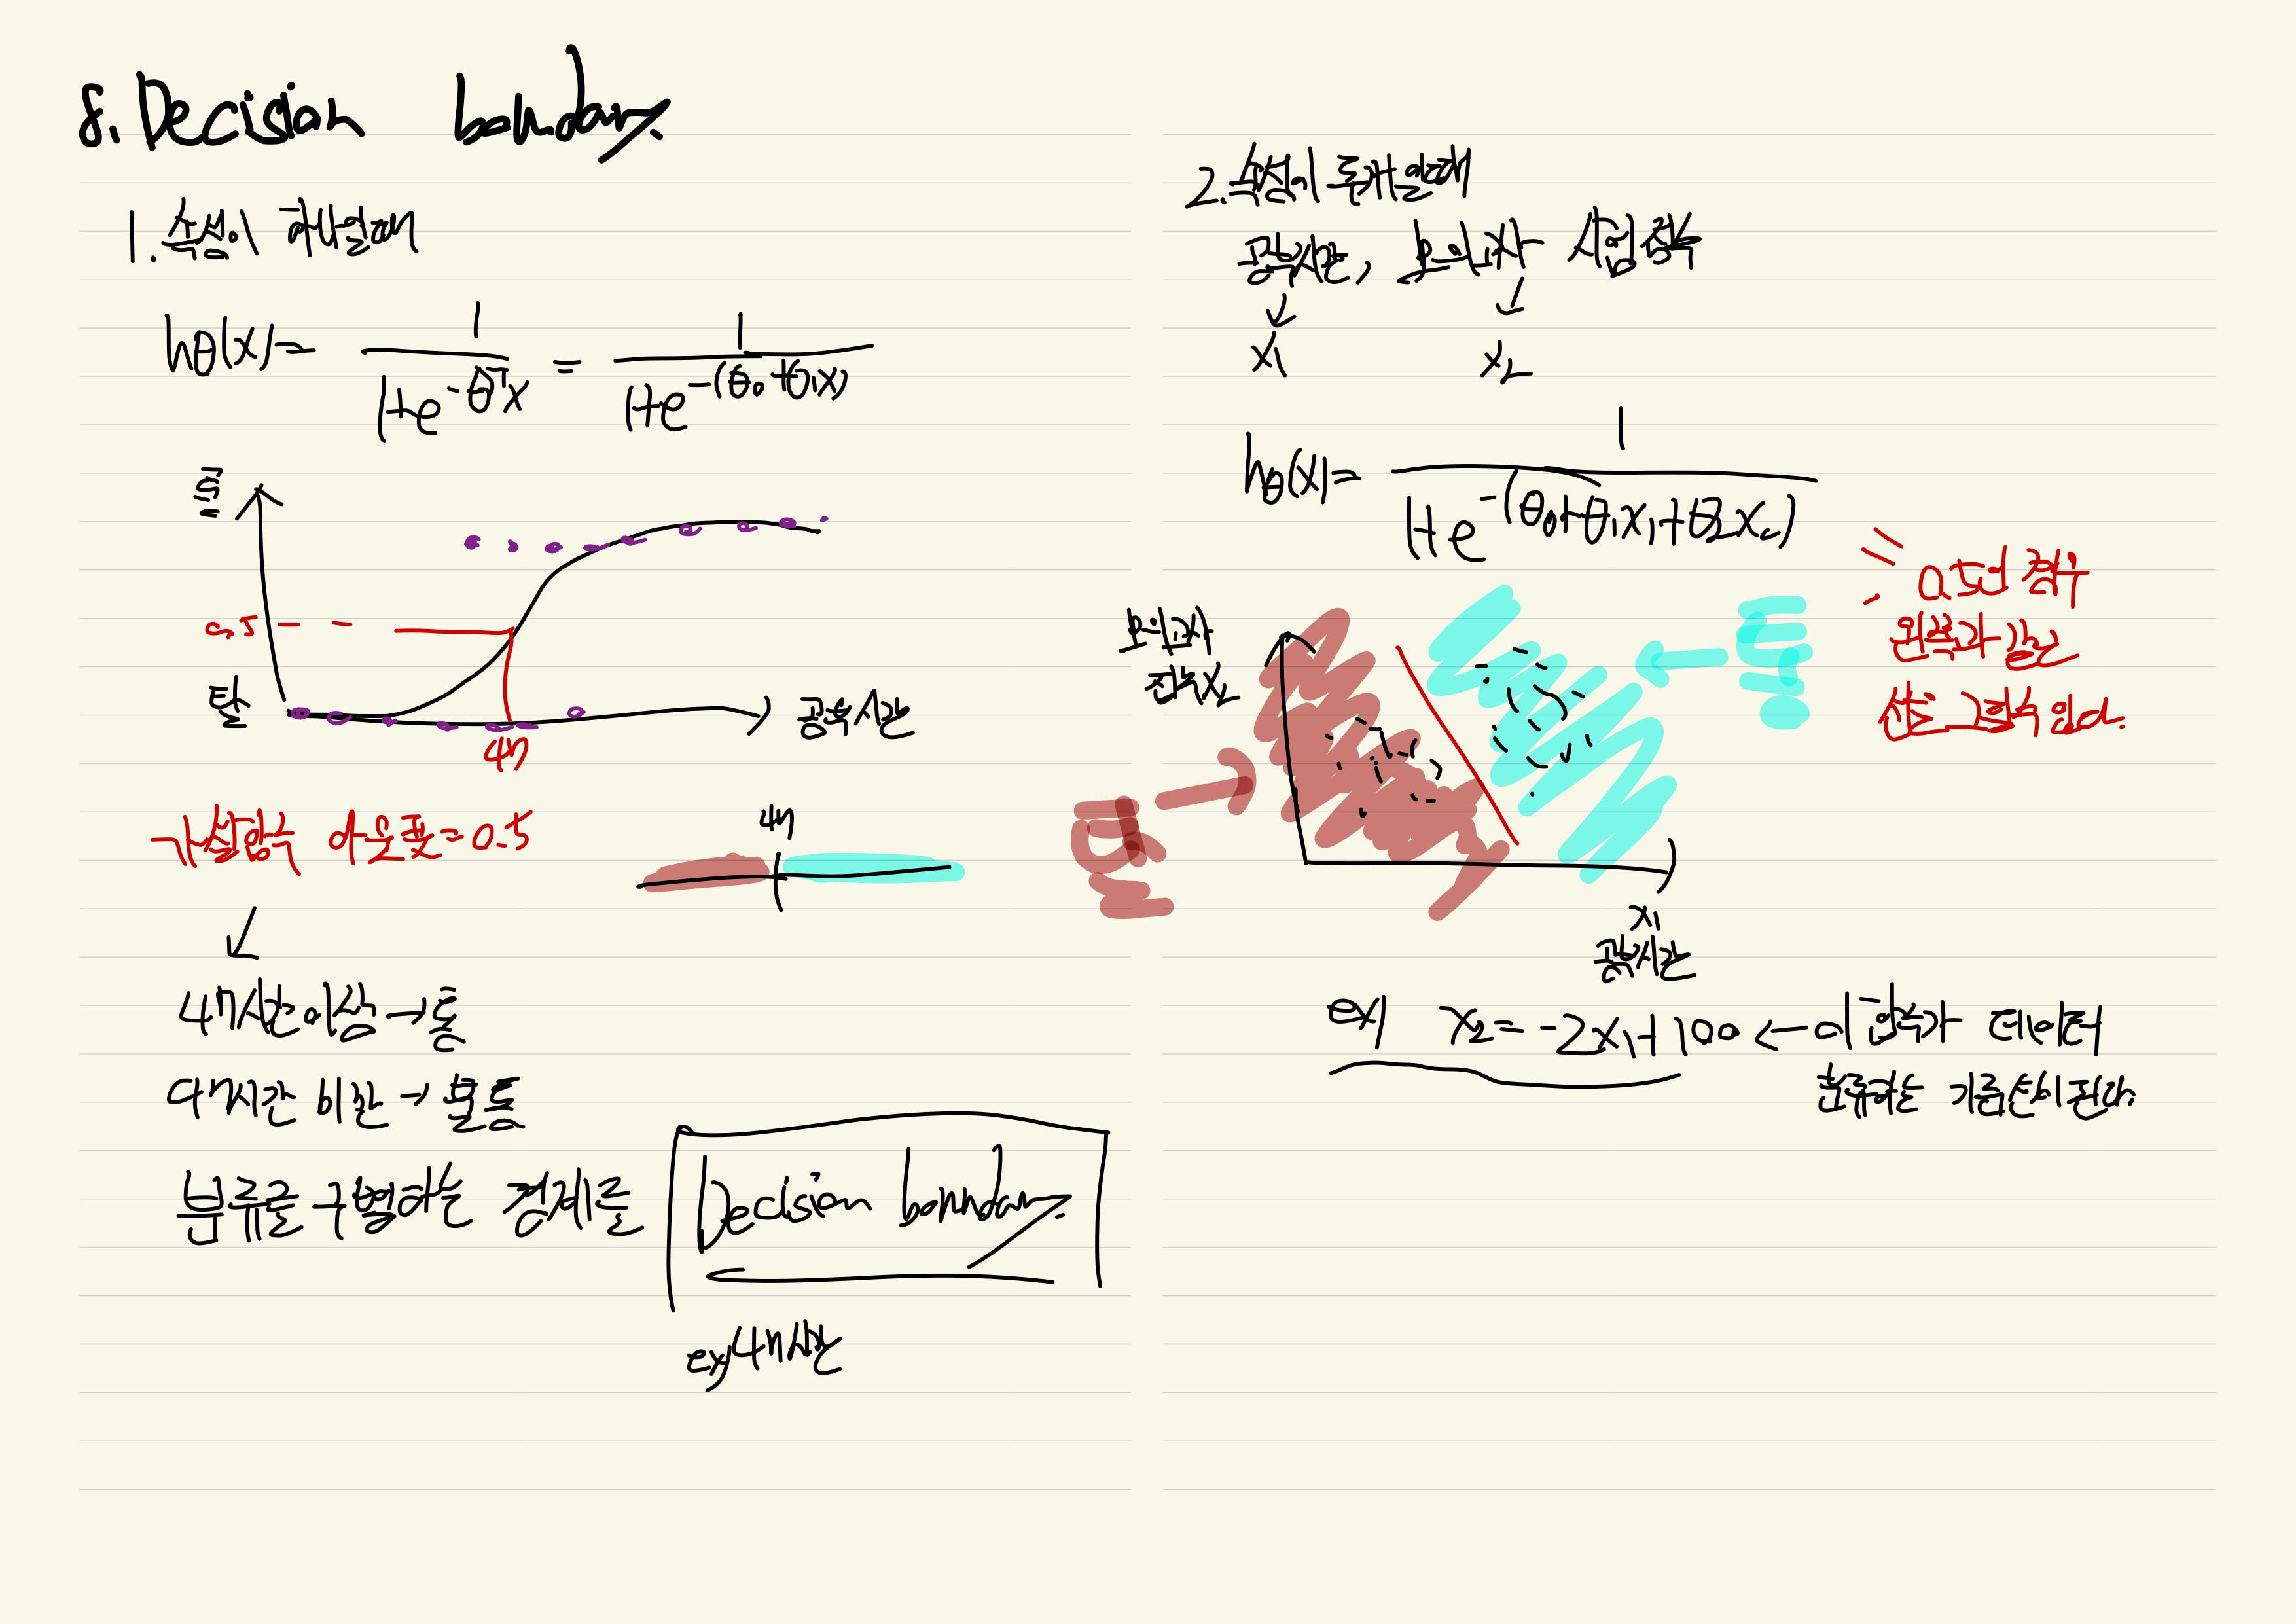 8. Decision boundary
1. 속성이 하나일때
hθ(x) = 1 / 1+e^-θᵀx = 1 / 1+e^-(θ₀+θ₁x)
통
0.5
탈
47
공부시간
가설함수 아웃풋=0.5
47
↙
47시간 이상 → 통
47시간 미만 → 불통
분류를 구별하는 경계를 Decision boundary
ex) 47시간
2. 속성이 두개일때
공부시간, 모의고사 시험점수
↓ ↓
x₁ x₂
hθ(x) = 1 / 1+e^-(θ₀+θ₁x₁+θ2x₂)
0.5인 경우
왼쪽과 같은
모의고사
점수x₂
통
탈
x₁
공부시간
ex) x₂ = -2x₁+100 ← 이 함수가 데이터
분류하는 기준선이 된다.